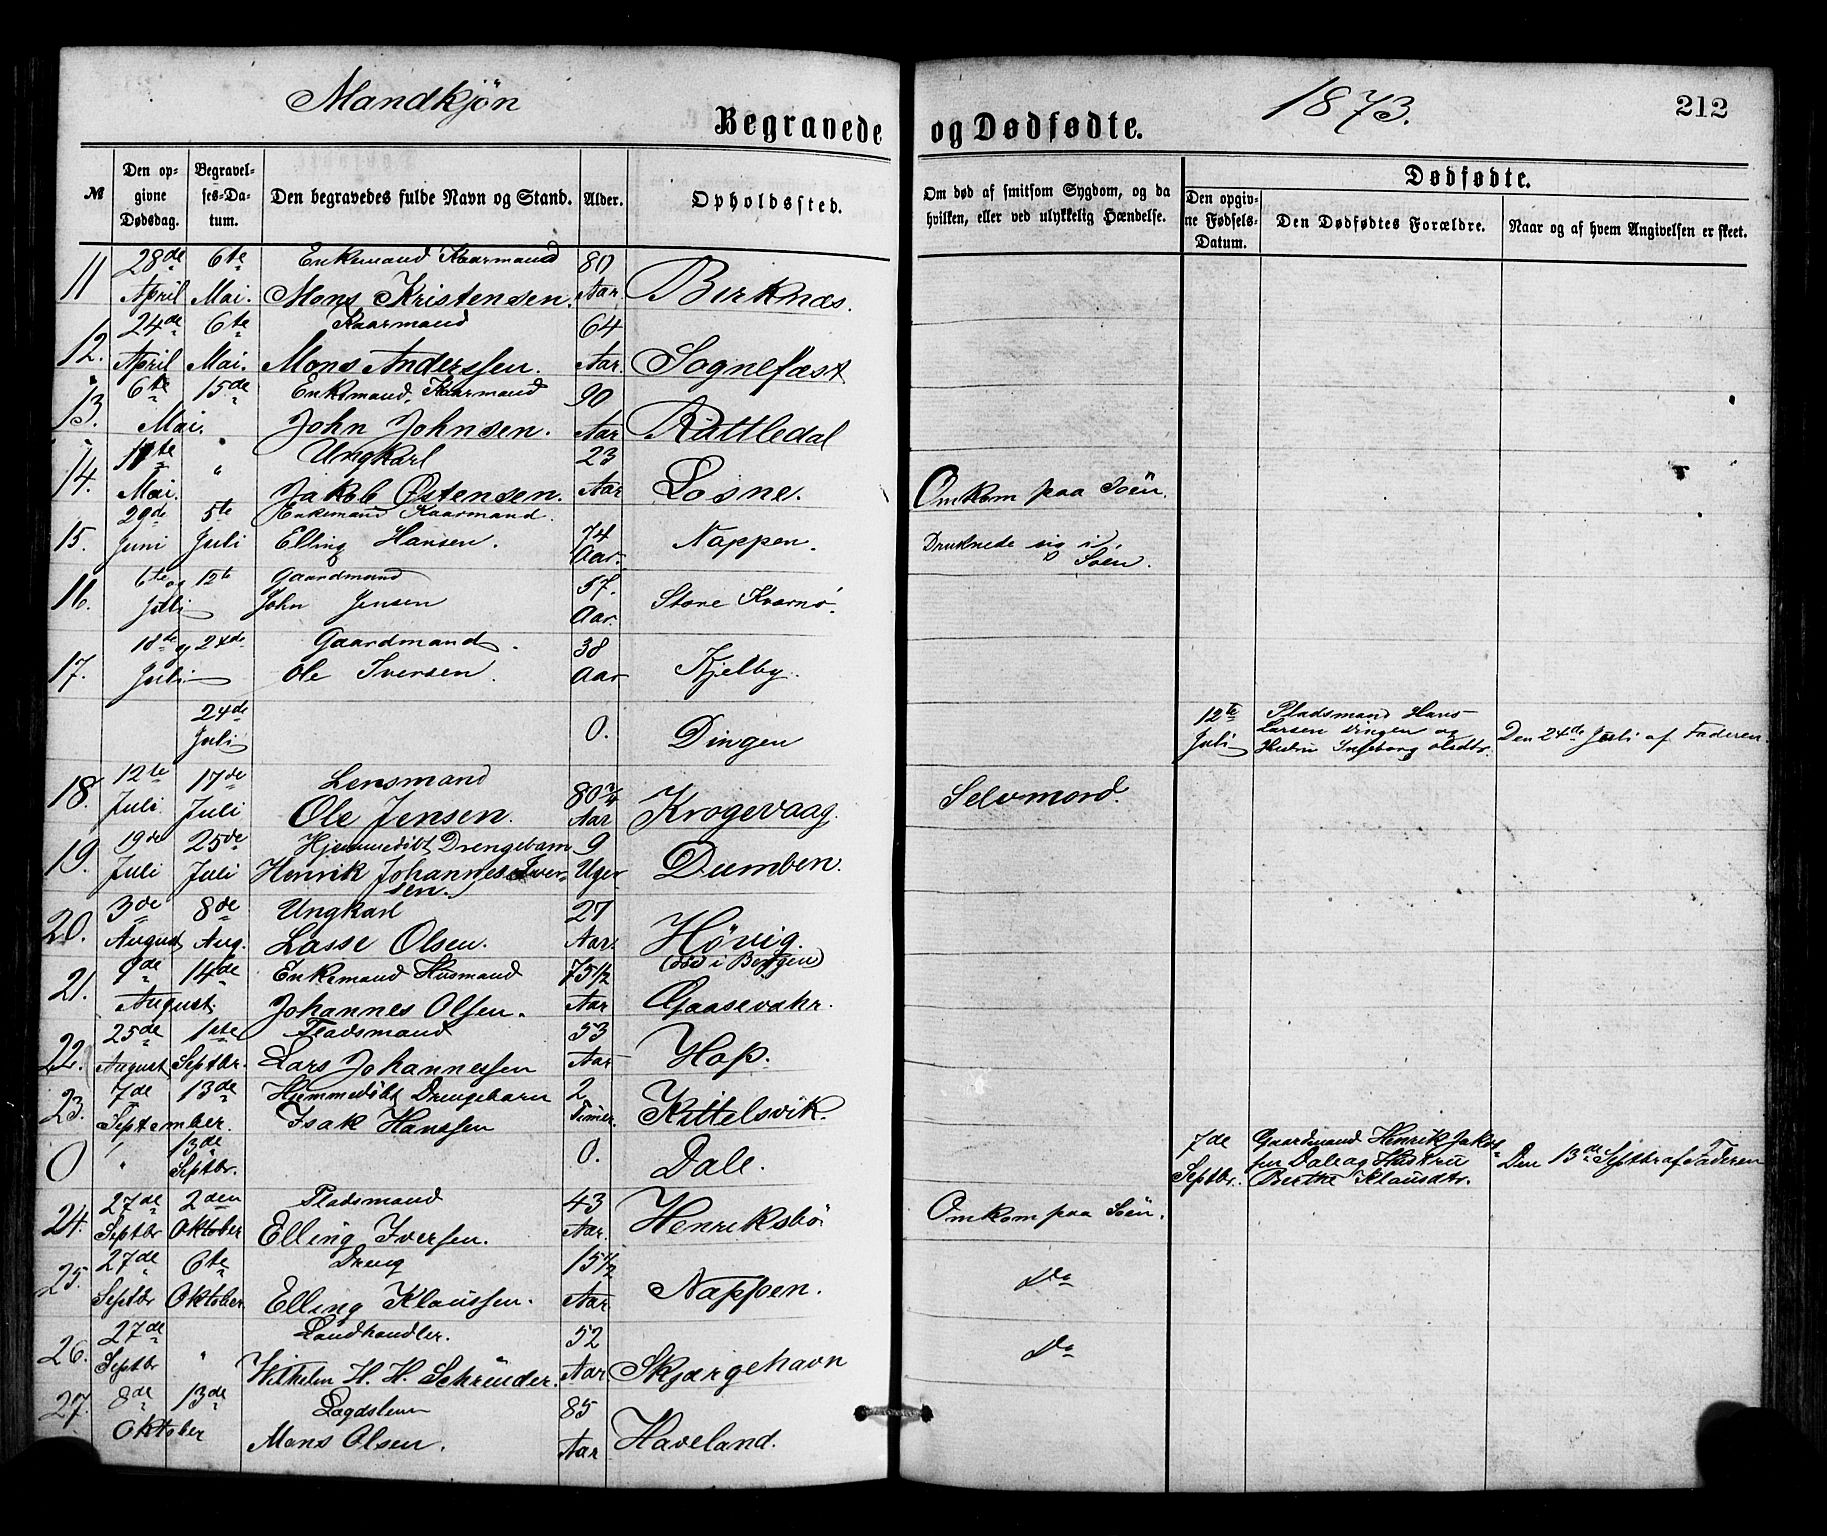 Mandkjön 1873. 212
Begravede og Dødfødte.
№ Den opgivne Dødsdag. Begravelses-Datum. Den begravedes fulde Navn og Stand. Alder. Opholdssted. Om død af smitsom Sygdom, og da hvilken, eller ved ulykkelig Hændelse. Dødfødte.
Den opgivne Fødsels-Datum. Den Dødfødtes Forældre. Naar og af hvem Angivelsen er skeet.
28de 6te Enkemand Kaarmand 80
11 April Mai. Mons Kristensen. Aar Birknæs.
24de 6te Kaarmand 64
12. April Mai. Mons Anderssen. Aar Sognefæst
6te 15de Enkemand, Kaarmand 90
13. Mai. John Johnsen. Aar Rutledal
11te " Ungkarl 23
14. Mai. " Jakob Østensen. Aar Losne. Omkom paa Söen.
29de 5te Enkemand Kaarmand. 74
15. Juni Juli Elling Hansen. Aar. Nappen. Druknede sig i Söen.
6te og 12te Gaardmand 57.
16. Juli John Jensen Aar. Store Kvernø.
18de og 24de Gaardmand. 38
17. Juli Ole Iversen. Aar Kjelby.
24de Juli 0. Dingen 12te Juli Pladsmand Hans Larsen Dingen og Hustru Ingeborg Olsdtr. Den 24de Juli af Faderen.
12te 17de Lensmand 80¾
18. Juli Juli Ole Jensen. Aar Krogevaag. Selvmord.
19de 25de Hjemmedöbt Drengebarn 9
19. Juli Juli Henrik Johannes Iversen. Uger Dumben.
3de 8de Ungkarl 27
20. August Aug. Lasse Olsen. Aar. Høvig.
(död i Bergen)
9de 14de Enkemand Husmand 75½
21. August Johannes Olsen. Aar Gaasevahr.
25de 1ste Pladsmand 53
22. August Septbr. Lars Johannessen Aar Hop.
7de 13de Hjemmedöbt Drengebarn 2
23. September. Isak Hanssen Timer. Kittelsvik.
0 " 13de Septbr. 0. Dale. 7de Septbr. Gaardmand Henrik Jakobsen Dale og Hustru Berthe Klausdtr. Den 13de Septbr af Faderen
27de 2den Pladsmand 43
24. Septbr Oktober Elling Iversen. Aar. Henriksbö Omkom paa Söen.
27de 6te Dreng 15½
25. Septbr Oktober. Elling Klaussen. Aar Nappen. Do
27de Landhandler. 52
26. Septbr " Wilhelm H. H. Schreuder. Aar Skjærgehavn Do
8de 13de Lægdslem 85
27. Oktober Mons Olsen. Aar Haveland.